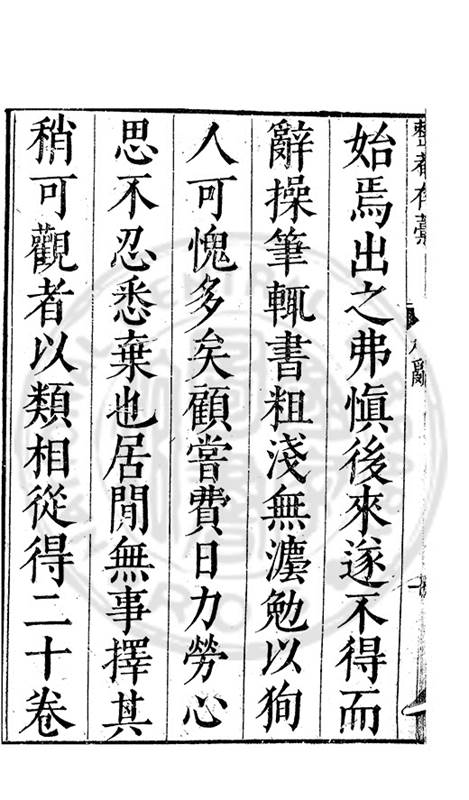 整菴存藁
始焉出之弗慎後來遂不得而
辭操筆輒書粗淺無灋勉以狥
人可愧多矣顧嘗費日力勞心
思不忍悉棄也居閒無事擇其
稍可觀者以類相從得二十卷